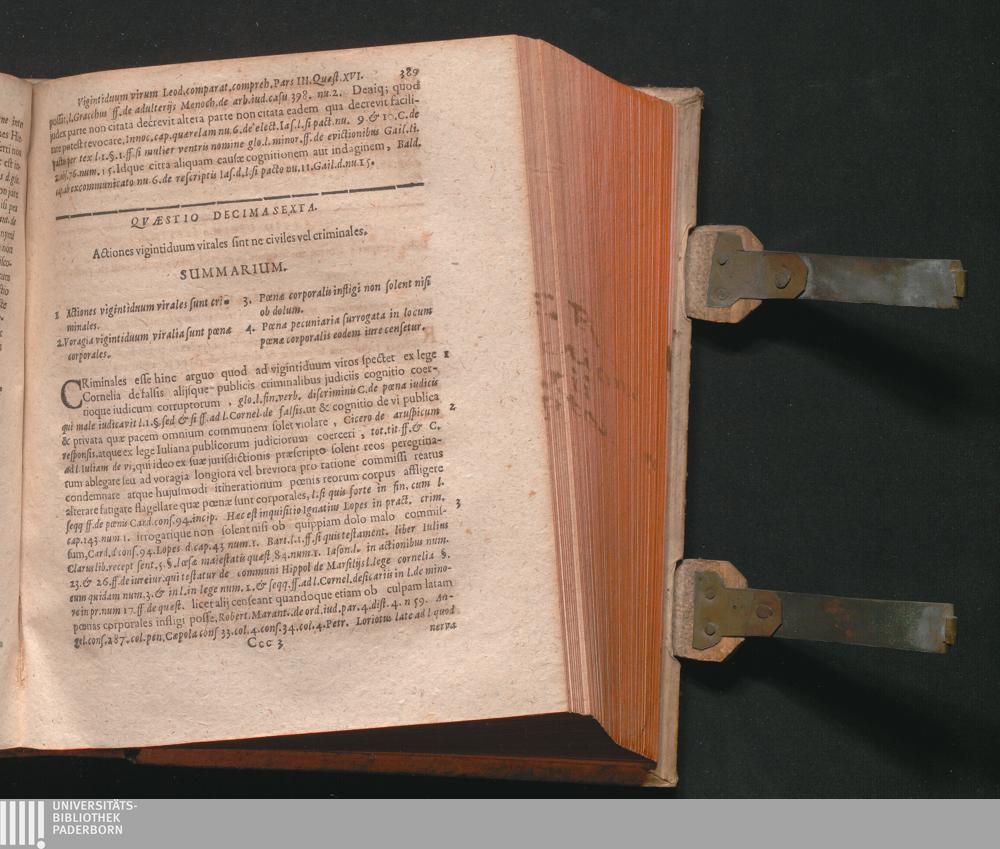 Vigintiduum virum Leod.comparat.compreh.Pars III.Quæst.XVI. 389
possit,l.Gracchus ff.de adulterijs Menoch.de arb.iud.casu 398. nu.2. Deniq; quod
judex parte non citata decrevit altera parte non citata eadem qua decrevit facili-
tate potest revocare, Innoc.cap.querelam nu.6.de elect.Ias.l.si pact.nu. 9.& 10.C.de
pacto per tex l.1.§.1.ff.si mulier ventris nomine glo.l.minor.ff.de evictionibus Gail.li.
2.obs.76.num.15.Idque citra aliquam causæ cognitionem aut indaginem, Bald.
excommunicato nu 6.de rescriptis Ias.d.l.si pacto nu.11.Gail.d.nu.15.
QVÆSTIO DECIMASEXTA.
Actiones vigintiduum virales sint ne civiles vel criminales.
SUMMARIUM.
1 Actiones vigintiduum virales sunt cri-
minales.
2.Voragia vigintiduum viralia sunt pœnæ
corporales.
3. Pœnæ corporalis instigi non solent nisi
ob dolum.
4. Pœna pecuniaria surrogata in locum
pœnæ corporalis eodem iure censetur.
CRiminales esse hinc arguo quod ad vigintiduum viros spectet ex lege 1
Cornelia de falsis alijsque publicis criminalibus judiciis cognitio coer-
tioque iudicum corruptorum , glo.l.fin.verb. discriminis C.de pœna iudicis
qui male iudicavit l.1.§.sed & si ff.ad l.Cornel.de falsis.ut & cognitio de vi publica
& privata quæ pacem omnium communem solet violare , Cicero de aruspicum 2
responsis.atque ex lege Iuliana publicorum judiciorum coerceri , tot.tit ff.& C.
ad l Iuliam de vi,qui ideo ex suæ jurisdictionis præscripto solent reos peregrina-
tum ablegare seu ad voragia longiora vel breviora pro ratione commissi reatus
condemnare atque hujusmodi itinerationum pœnis reorum corpus affligere
alterare fatigate flagellare quæ pœnæ sunt corporales, l.si quis forte in fin. cum l.
seqq ff.de pœnis Card.cons.94.incip. Hæc est inquisitio Ignatius Lopes in pract. crim. 3
cap.143.num 1. irrogatique non solent nisi ob quippiam dolo malo commis-
sum,Card.d cons.94.Lopes d.cap.43 num.1. Bart.l.1.ff.si quis testament. liber Iulius
Clarus lib.recept sent.5.§.læsæ majestatis quæst 84.num.1. Iason.l. in actionibus num.
23.& 26.ff.de iureiur.qui testatur de communi Hippol de Marsilijs l.lege cornelia §.
eum quidam num.3.& in l.in lege num.1.& seqq.ff.ad l.Cornel.de sicariis in l.de mino-
re in pr.num 17.ff.de quest. licet alij censeant quandoque etiam ob culpam latam
pœnas corporales infligi posse, Robert.Marant..de ord.iud.par.4.dist.4. n 59. An-
gel.cons.287.col.pen,Cæpola cons 33.col.4.cons.34.col.4.Petr. Loriotus late ad l quod
Ccc 3 nerva
UNIVERSITÄTS-
BIBLIOTHEK
PADERBORN